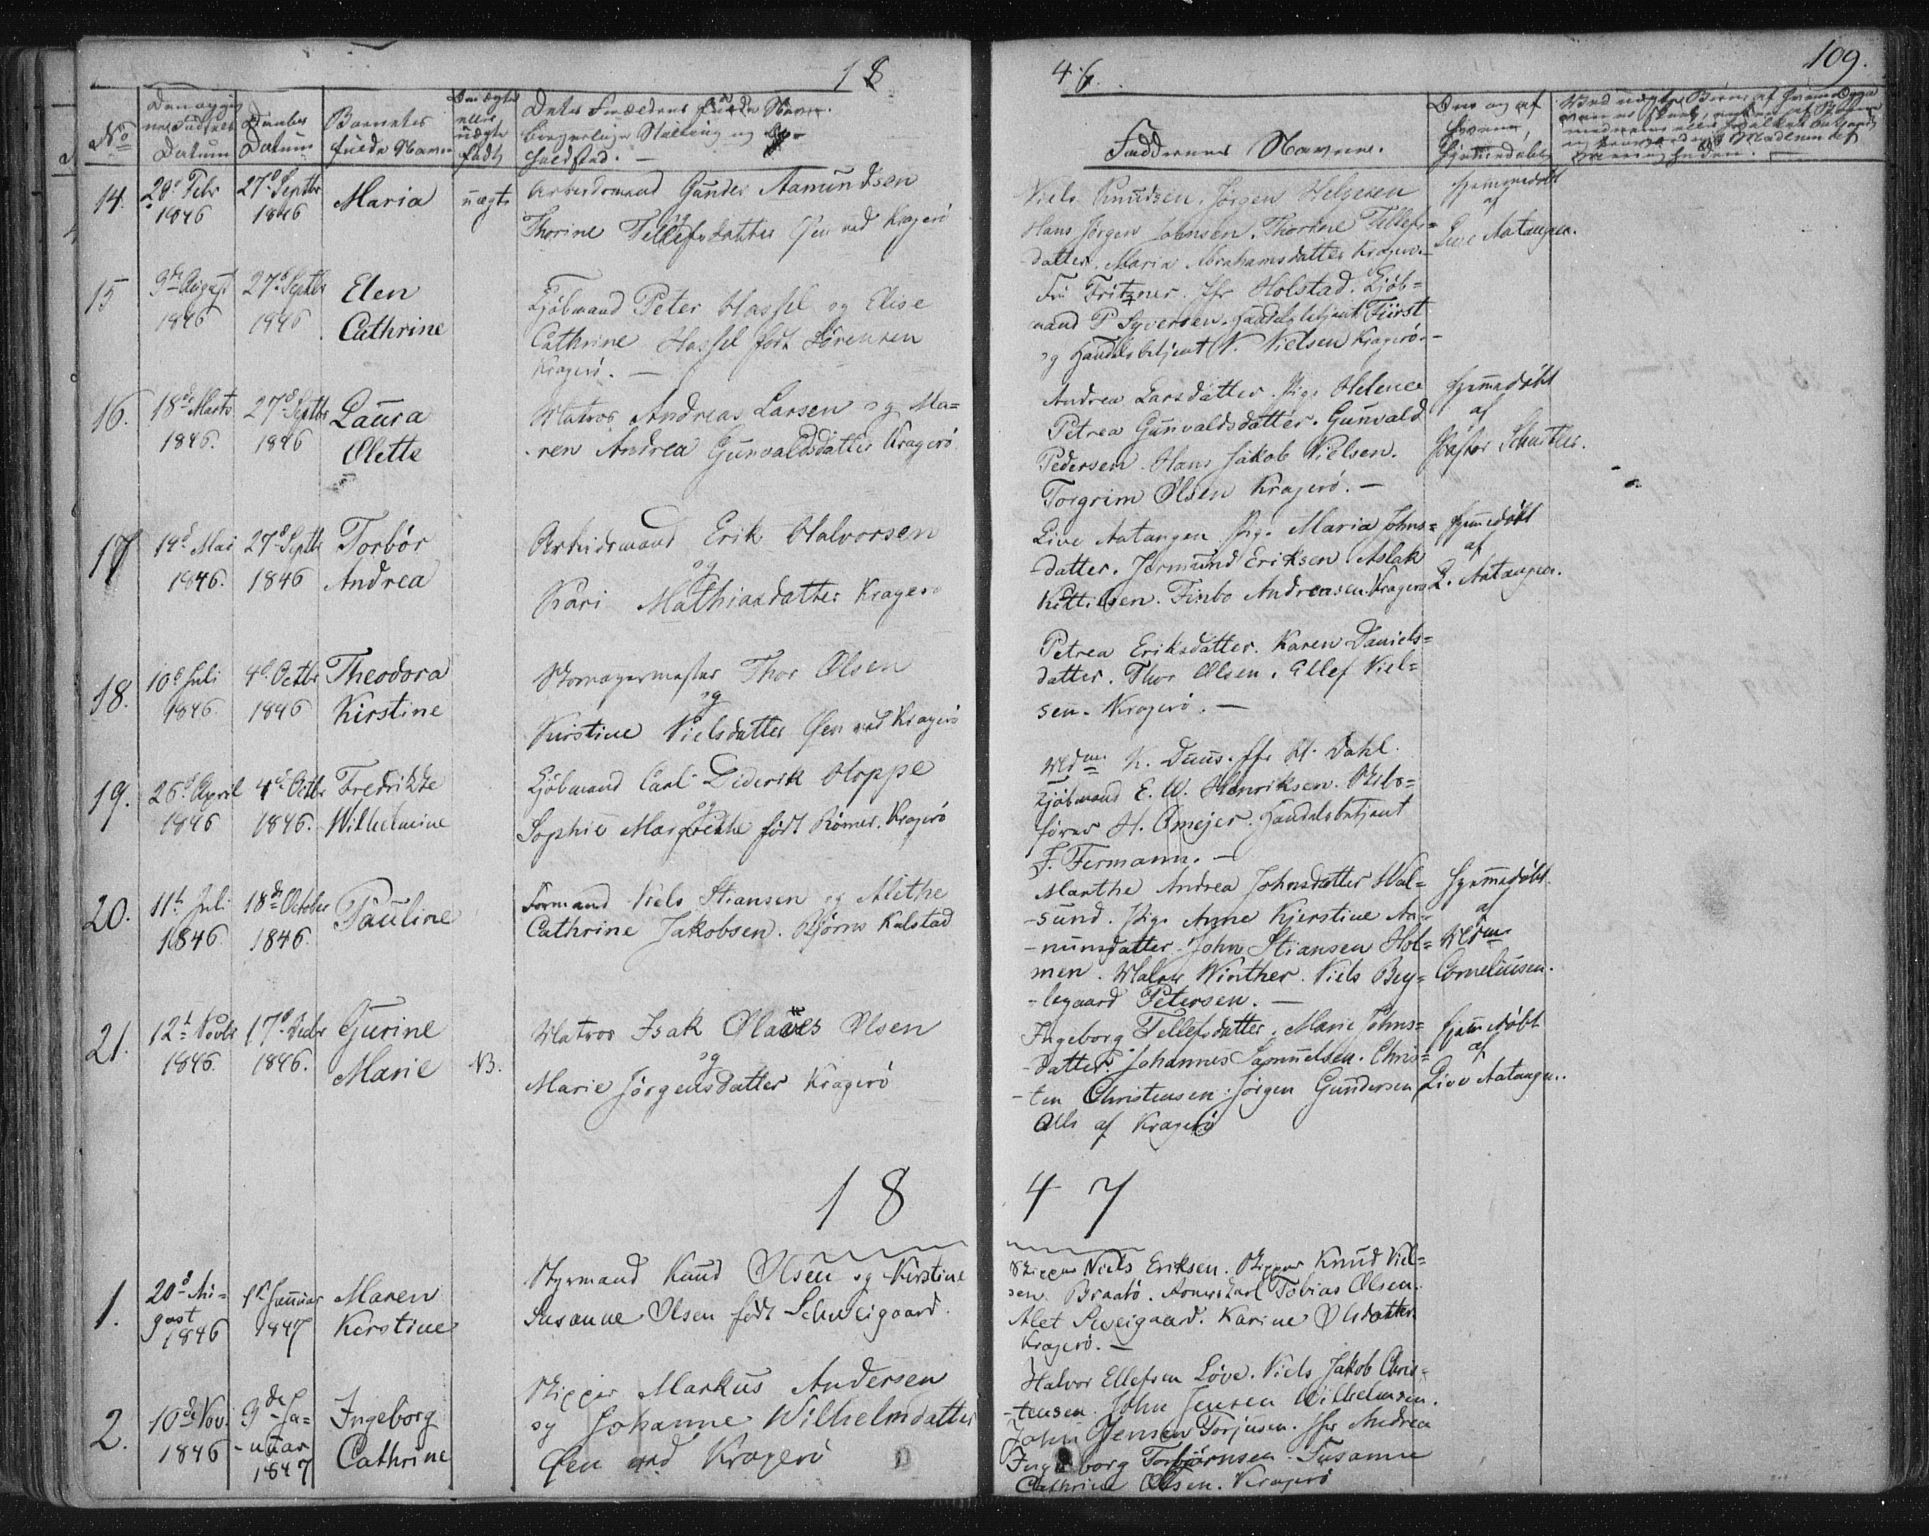 18 46. 109.
No
Barnets fulde Navn
Faddernes Navne.
14. 20d Febr 1846
27d Septbr 1846
Maria
uægte
Arbeidsmand Gunder Aamundsen
og
Thorine Tellefsdatter Øen ved Kragerö
Niels Knudsen. Jørgen Helgesen
Hans Jørgen Johnsen. Thorine Tellefs=
datter. Maria Abrahamsdatter Kragerö
Hjemmedøbt
af
Live Aatangen.
15 3die August 1846
27d Septbr 1846
Elen
Cathrine
Kjøbmand Peter Hassel og Elise
Cathrine Hassel født Sörensen
Kragerö.
Fru Fritzner. Jfr Holstad. Kjöb=
mand P Syversen. Handelsbetjent Fürst
og Handelsbetjent N. Nielsen Kragerö.
16. 18de Marts 1846.
27d Septbr 1846
Laura
Olette
Matros Andreas Larsen og Ma=
ren Andrea Gunvaldsdatter Kragerö
Andrea Larsdatter. Pige Helene
Petrea Gunvaldsdatter. Gunvald
Pedersen. Hans Jakob Nielsen.
Torgrim Olsen Kragerö.
Hjemmedöbt
af
Pastor
17 19d Mai 1846.
27d Septbr 1846
Torbör
Andrea
Arbeidsmand Erik Halvorsen
og
Kari Mathiasdatter Kragerö
Live Aatangen. Pige Maria Johns=
datter. Jermund Eriksen. Aslak
Kittilsen. Finbo Andreasen. Kragerö
Hjemmedöbt
af
L. Aatangen.
18. 10d Juli 1846
4d Octbr 1846
Theodora
Kirstine
Skomagermester Thor Olsen
og
Kirstine Nielsdatter Øen ved Kragerö
Petrea Eriksdatter. Karen Daniels=
datter. Thor Olsen. Ellef Niel=
sen. Kragerö.
19. 26d April 1846
4d Octbr 1846.
Fredrikke
Wilhelmine
Kjöbmand Carl Diderik Hoppe
og
Sophie Margrethe född Römer. Kragerö
Mdm K. Daus. Jfr H. Dahl.
Kjöbmand E. W. Henriksen. Skibs=
förer H. Omejer. Handelsbetjent
F. Fermann.
20. 11t Juli 1846
18de October 1846.
Pauline
Formand Niels Stiansen og Alethe
Cathrine Jakobsen. Björns Kalstad
Marthe Andrea Johnsdatter Hal=
sund. Pige Anne Kjerstine An=
nunsdatter. John Stiansen Hol=
men. Malene Winther. Niels Bey=
legaard Petersen.
Hjemmedöbt
af
Mdm
Corneliussen.
21. 12t Novbr 1846.
17d Decbr 1846.
Gurine
Marie
NB.
Matros Isak Olaves Olsen
og
Marie Jörgensdatter Kragerö
Ingeborg Tellefsdatter. Marie Johns=
datter. Johannes Samuelsen. Chris=
ten Christensen. Jörgen Gundersen
Alle af Kragerö
Hjemmedöbt
af
Live Aatangen.
18 47
1. 20d Au-
gust
1846
1st Januar 1847
Maren
Kirstine
Styrmand Knud Olsen og Kirstine
Susanne Olsen född Schweigaard.
Skipper Niels Eriksen. Skipper Knud Niel=
sen. Braatö. Tobias Olsen.
Alet Sweigaard. Karine Olsdatter
Kragerö.
2. 10de Nov. 1846
3de Ja=
nuar
1847
Ingeborg
Cathrine
Skipper Markus Andersen
og Johanne Wilhelmdatter
Øen ved Kragerö
Halvor Ellefsen Löve. Niels Jakob Chris-
tensen. John Jensen Wilhelmsen.
John Jensen Torjusen. Jfr Andrea
Ingeborg Torbjörnsen. Susanne
Cathrine Olsen. Kragerö